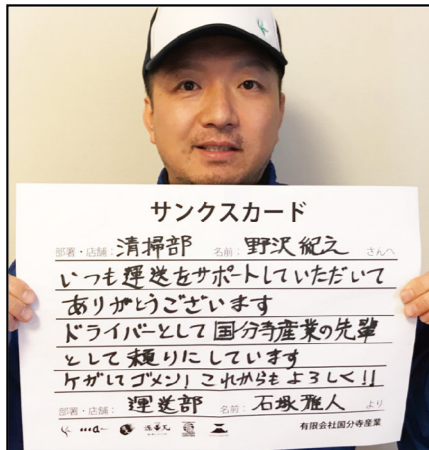 サンクスカード
部署・店舗：清掃部 名前：野沢紀之 さんへ
いつも運送をサポートしていただいて
ありがとうございます
ドライバーとして国分寺産業の先輩
として頼りにしています
ケガしてゴメン！これからもよろしく!!
部署・店舗：運送部 名前：石塚雅人 より
有限会社国分寺産業